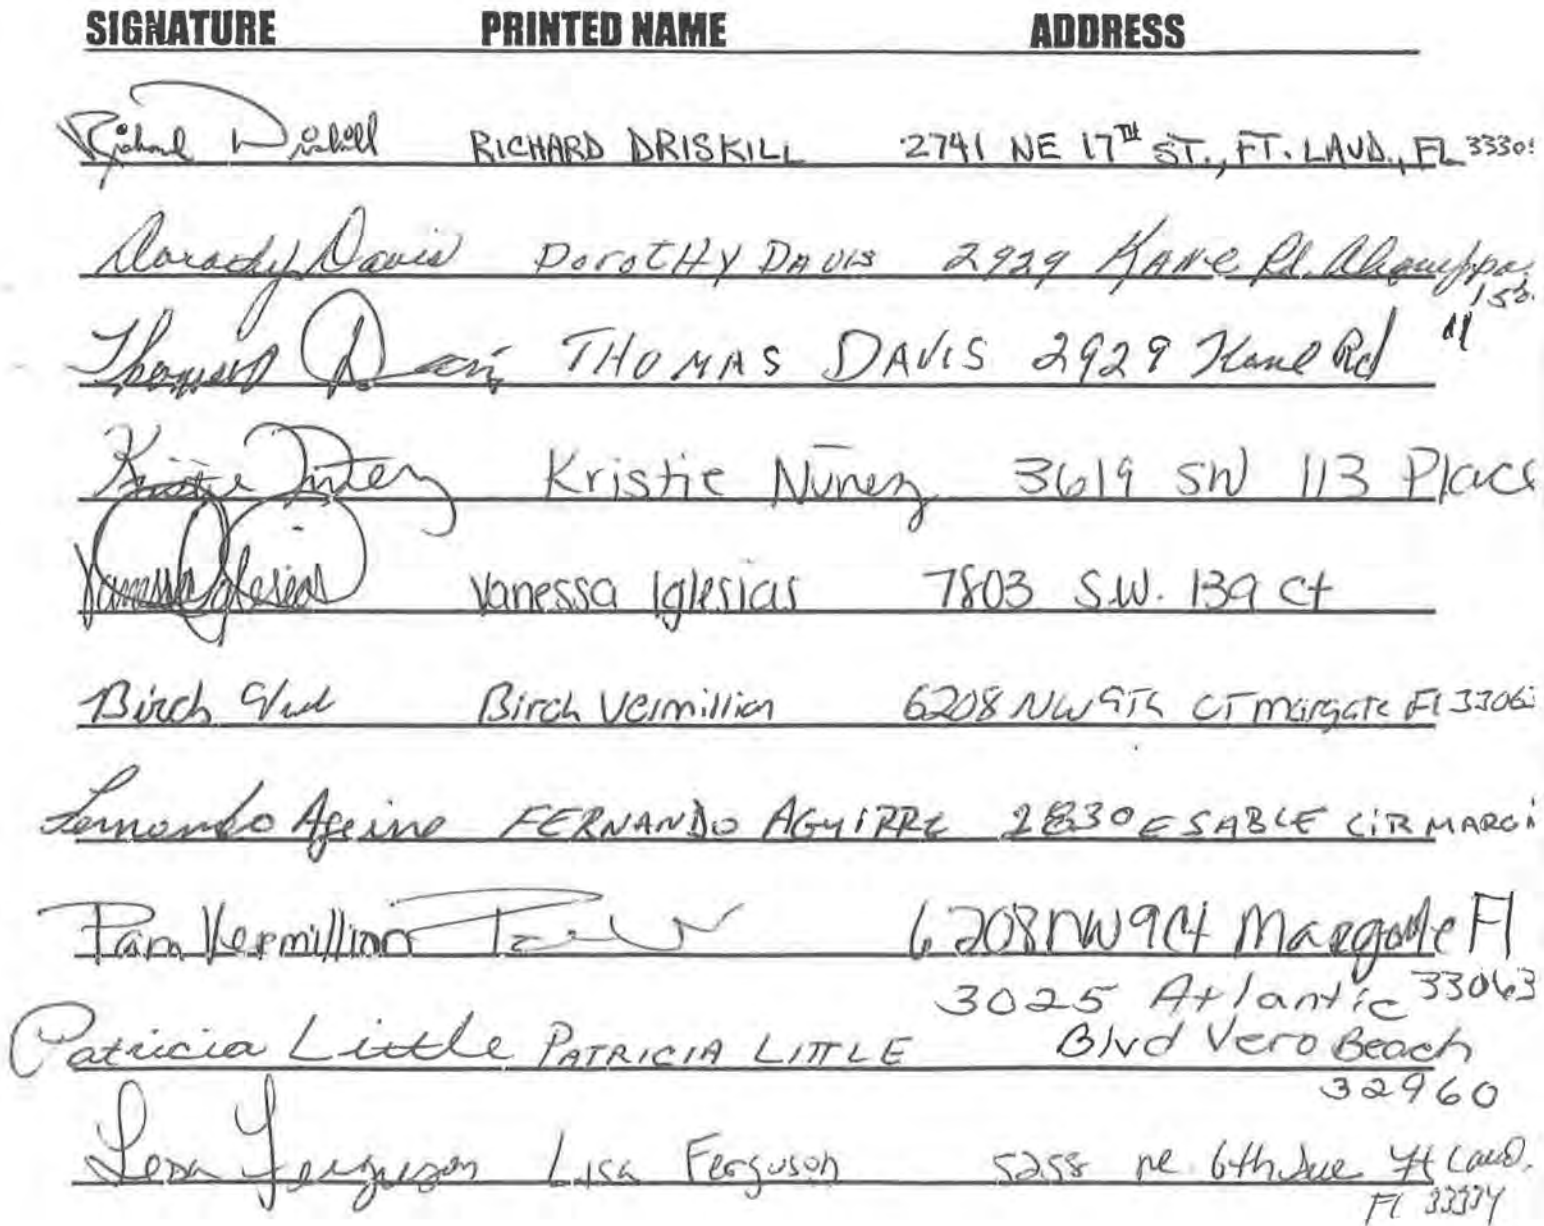 SIGNATURE PRINTED NAME ADDRESS
Richard Driskill RICHARD DRISKILL 2741 NE 17TH ST., FT. LAUD., FL 3330
Dorothy Davis DorotHy DAVIS 2929 KANE Rd. Aliquippa,
Thomas Davis THOMAS DAVIS 2929 Kane Rd "
Kristie Nunez Kristie Nunez 3619 SW 113 Place
Vanessa Iglesias Vanessa Iglesias 7803 S.W. 139 Ct
Birch Birch Vermillion 6208 NW 9Th CT margate Fl 3306
Fernando Aguirre FERNANDO AGUIRRE 2830 E SABLE CIR MARG
Pam Vermillion 6208 NW 9 Ct Margate Fl
33063
Patricia Little PATRICIA LITTLE 3025 Atlantic
Blvd Vero Beach
32960
Lisa Ferguson Lisa Ferguson 5258 ne 6th Ave Ft Laud.
Fl 33334